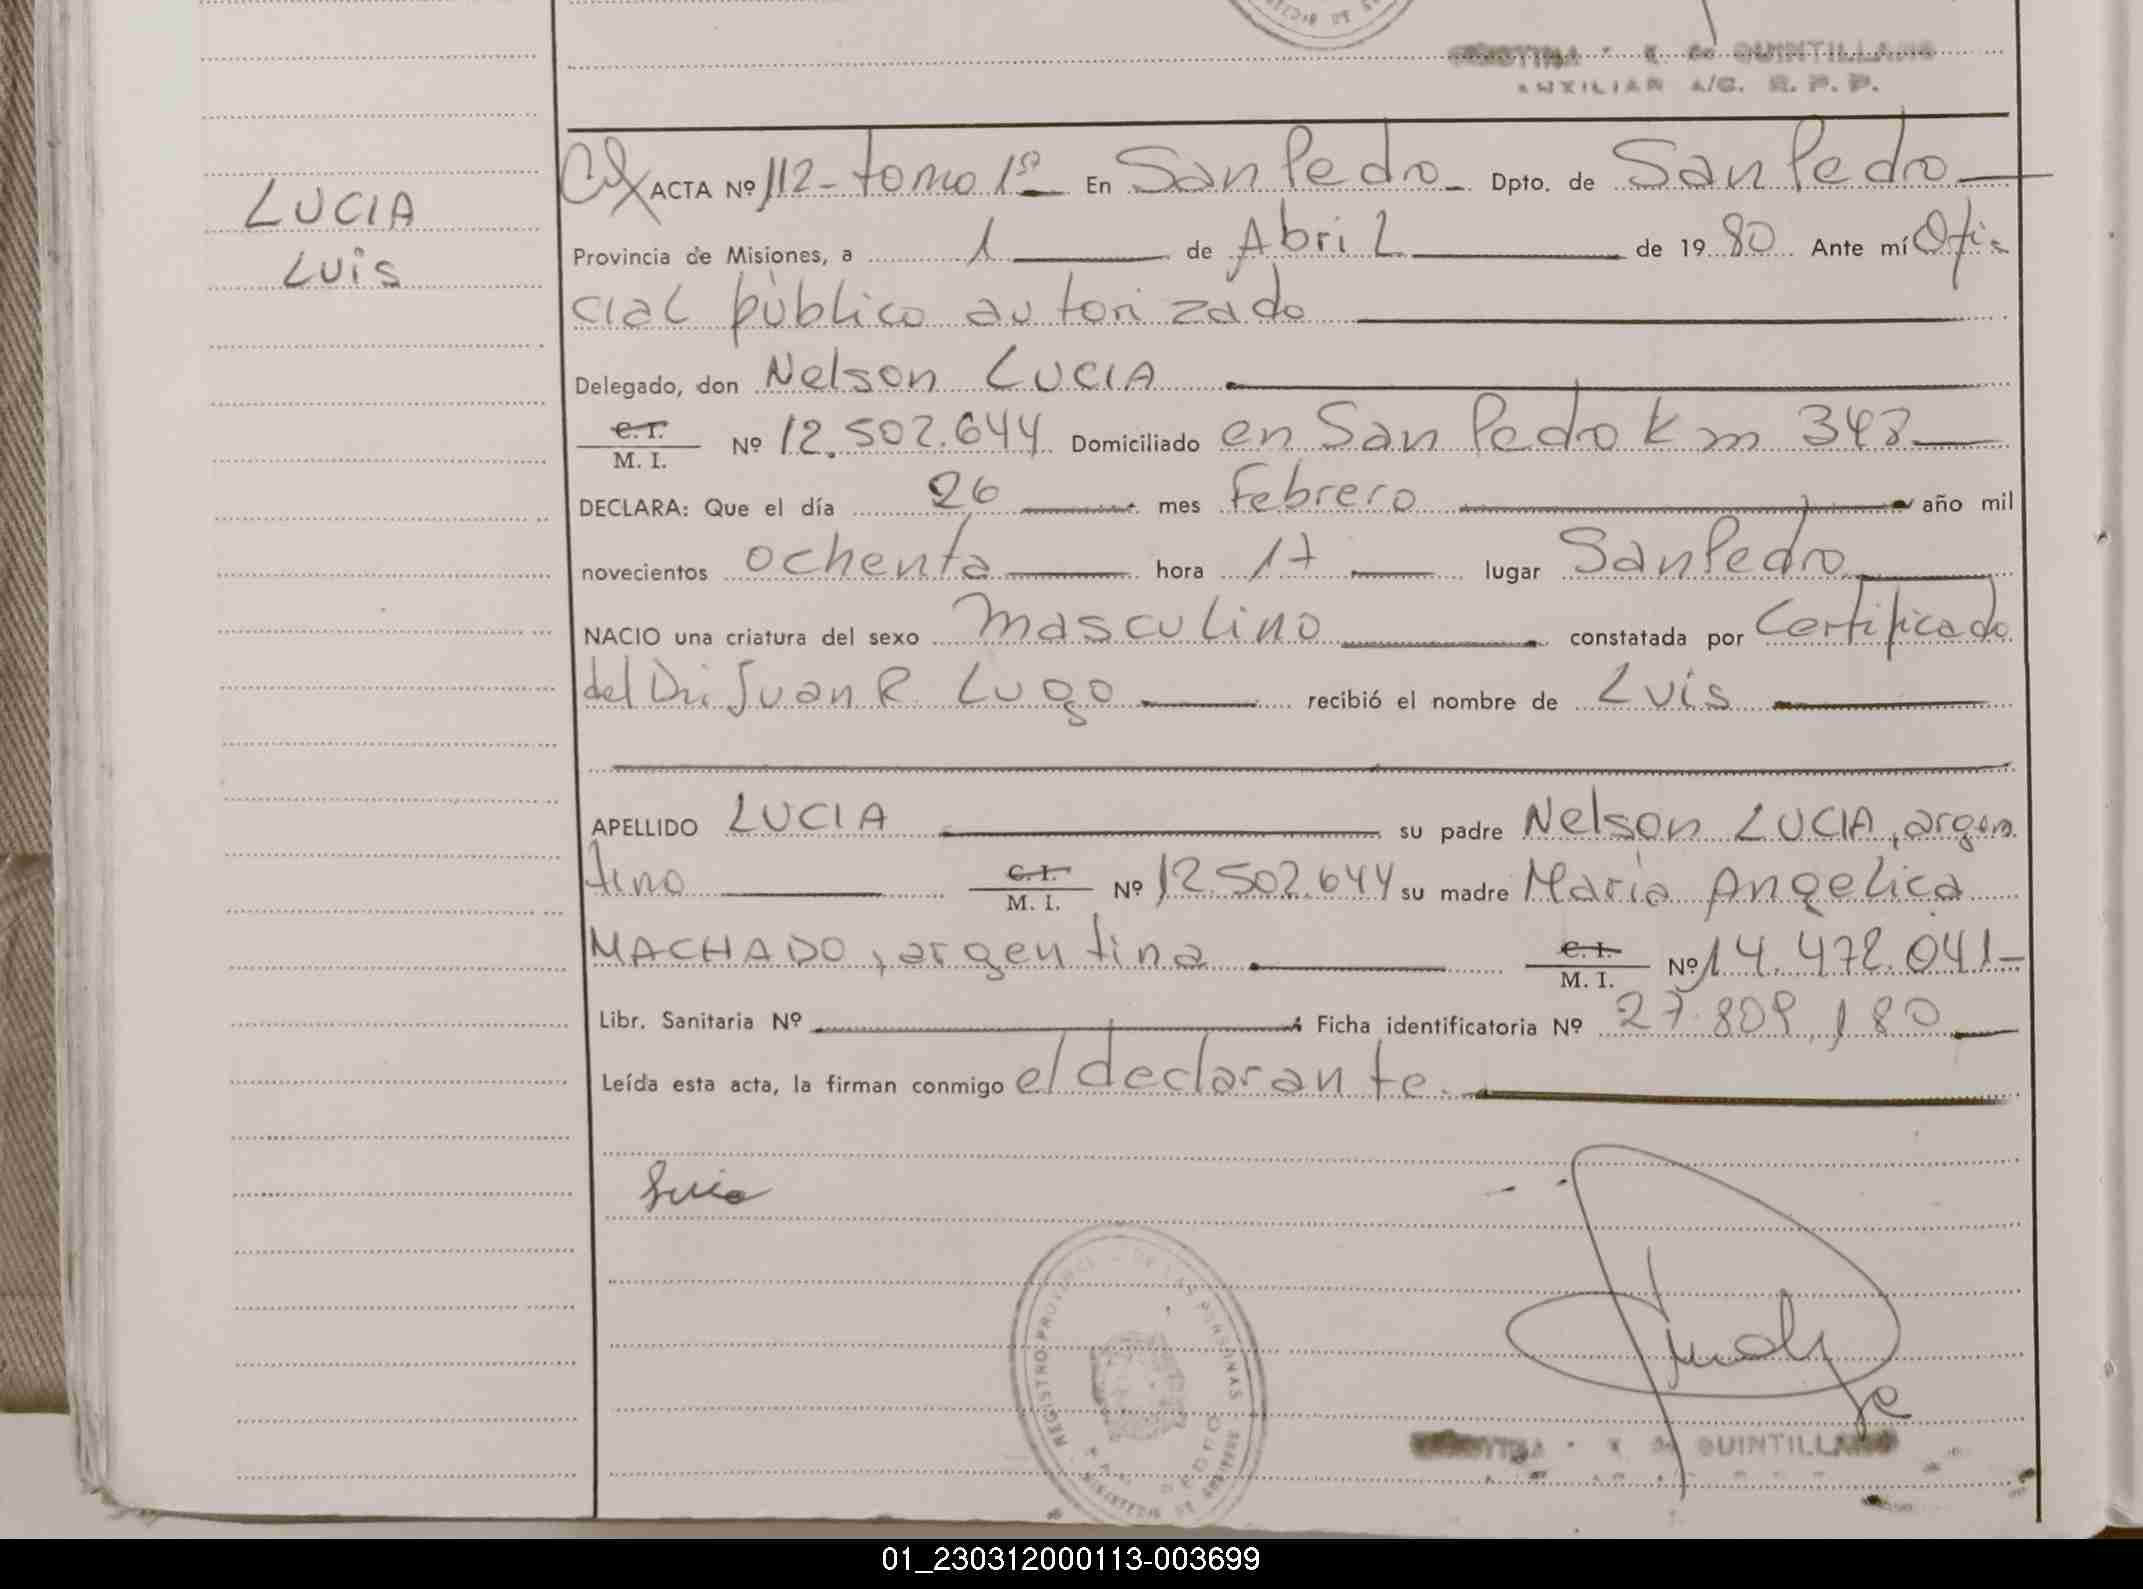 QUINTILLANO
AUXILIAR A/C. R. P. P.
LUCIA
Luis
ACTA Nº 112 - tomo 1º En San Pedro Dpto. de San Pedro
Provincia de Misiones, a 1 de Abril de 1980 Ante mí Ofi-
cial público autorizado
Delegado, don Nelson LUCIA
C. I.
M. I. Nº 12.502.644 Domiciliado en San Pedro Km 343
DECLARA: Que el día 26 mes Febrero año mil
novecientos ochenta hora 17 lugar San Pedro
NACIO una criatura del sexo masculino constatada por Certificado
del Dr. Juan R. Lugo recibió el nombre de Luis
APELLIDO LUCIA su padre Nelson LUCIA, argen
tino C. I.
M. I. Nº 12.502.644 su madre María Angelica
MACHADO, argentina C. I.
M. I. Nº 14.472.041-
Libr. Sanitaria Nº Ficha identificatoria Nº 27.809.180
Leída esta acta, la firman conmigo el declarante.
REGISTRO PROVINCIAL DE LAS PERSONAS
QUINTILLANO
01_230312000113-003699